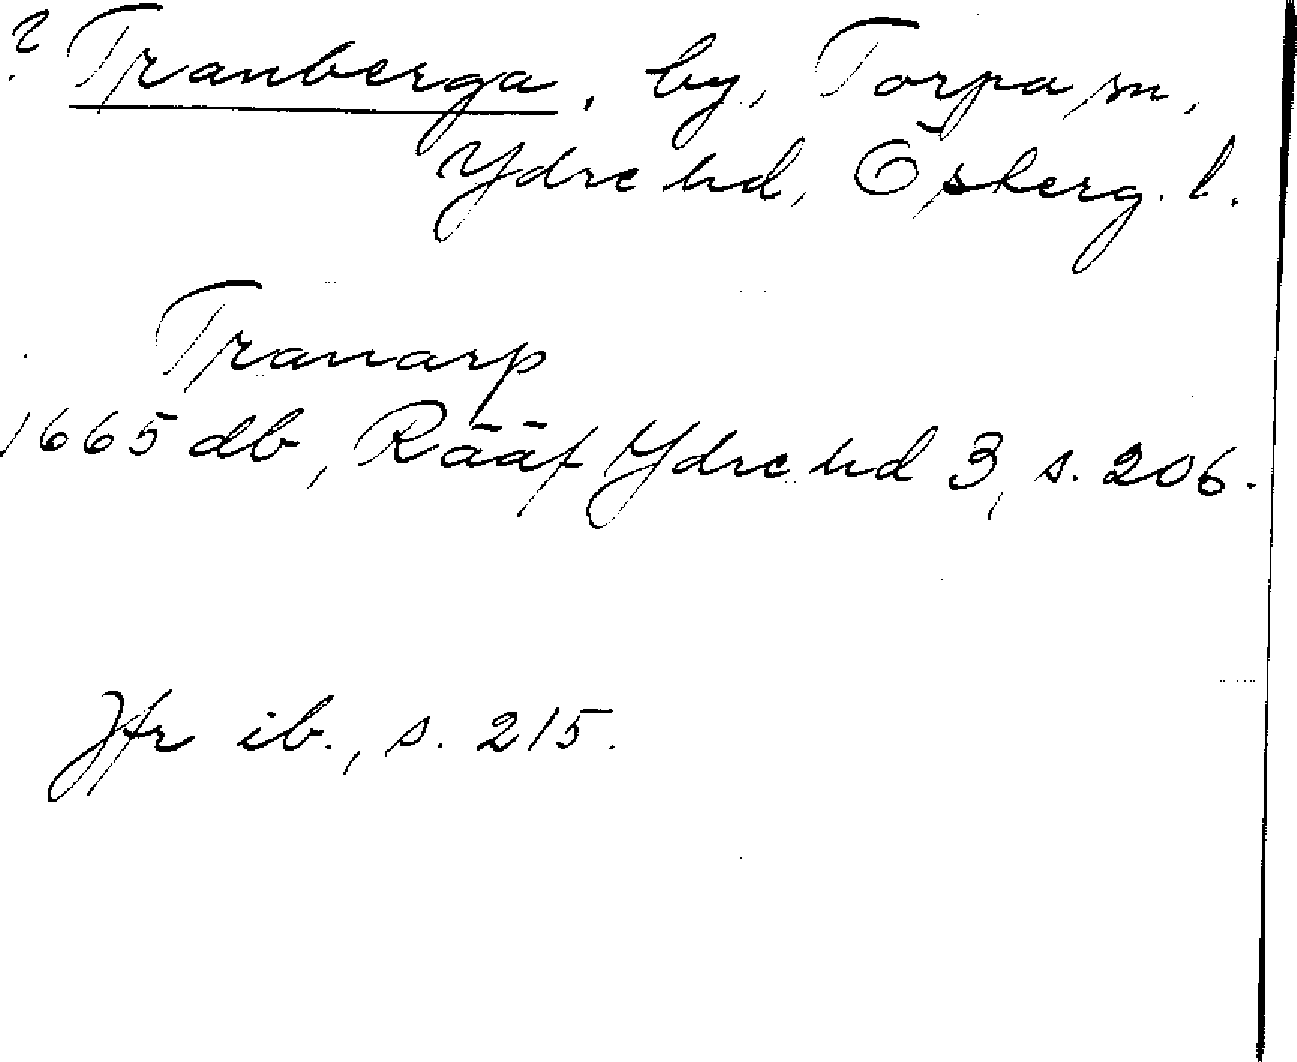 ? Tranberga, by, Torpa sn,
Ydre hd, Österg. l.
Tranarp
1665 db, Rääf Ydre hd 3, s. 206.
Jfr ib., s. 215.